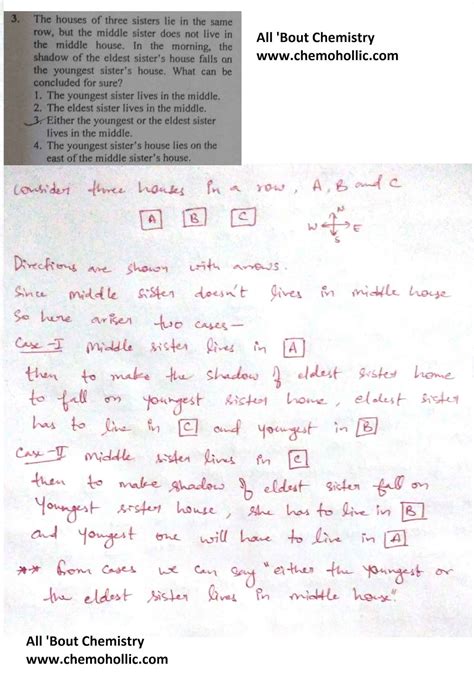 3. The houses of three sisters lie in the same
row, but the middle sister does not live in
the middle house. In the morning, the
shadow of the eldest sister's house falls on
the youngest sister's house. What can be
concluded for sure?
1. The youngest sister lives in the middle.
2. The eldest sister lives in the middle.
3. Either the youngest or the eldest sister
lives in the middle.
4. The youngest sister's house lies on the
east of the middle sister's house.
All 'Bout Chemistry
www.chemohollic.com
Consider three houses in a row, A, B and C
A B C
N
W E
S
Directions are shown with arrows.
Since middle sister doesn't lives in middle house
So here arises two cases—
Case-I Middle sister lives in A
then to make the shadow of eldest sister home
to fall on youngest sister home, eldest sister
has to live in C and youngest in B
Case-II middle sister lives in C
then to make shadow of eldest sister fall on
Youngest sister house, she has to live in B
and youngest one will have to live in A
** from cases we can say "either the youngest or
the eldest sister lives in middle house".
All 'Bout Chemistry
www.chemohollic.com